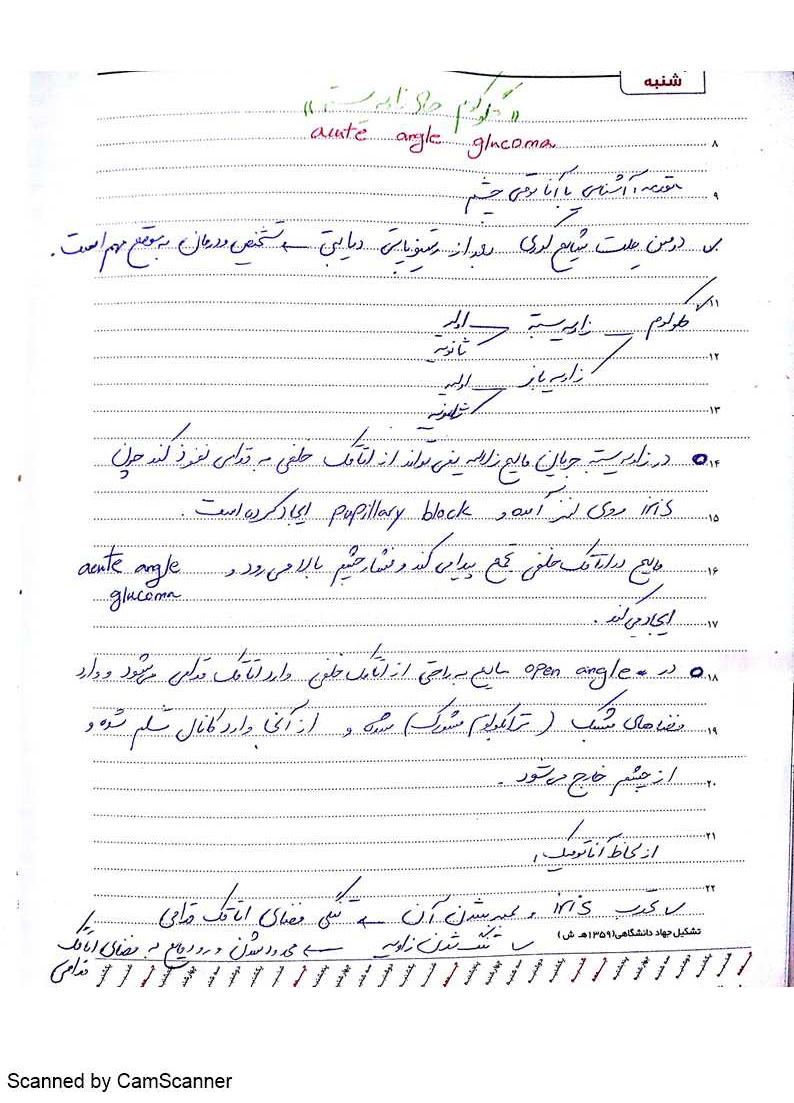 شنبه
«گلوکوم حاد زاویه بسته»
۸ acute angle glucoma
۹ مقدمه: آشنایی با آناتومی چشم
دومین علت شایع کوری بعد از رتینوپاتی دیابتی ← تشخیص و درمان به موقع مهم است.
۱۱
گلوکوم زاویه بسته اولیه
۱۲ ثانویه
زاویه باز اولیه
۱۳ ثانویه
۱۴ در زاویه بسته جریان مایع زلالیه نمی تواند از اتاقک خلفی به قدامی نفوذ کند چون
۱۵ iris روی لنز آمده و pupillary block ایجاد کرده است.
۱۶ مایع در اتاقک خلفی تجمع پیدا می کند و فشار چشم بالا می رود و acute angle
glucoma
۱۷ ایجاد می کند.
۱۸ در open angle مایع به راحتی از اتاقک خلفی وارد اتاقک قدامی می شود و وارد
۱۹ فضاهای مشبک (ترابکولوم مشبک) شده و از آنجا وارد کانال شلم شده و
۲۰ از چشم خارج می شود.
۲۱
از لحاظ آناتومیک:
۲۲
تحدب iris و شدن آن ← تنگی فضای اتاقک قدامی
تشکیل جهاد دانشگاهی (۱۳۵۹ هـ ش)
تنگ شدن زاویه ← محدود شدن ورود مایع به فضای اتاقک
قدامی
Scanned by CamScanner